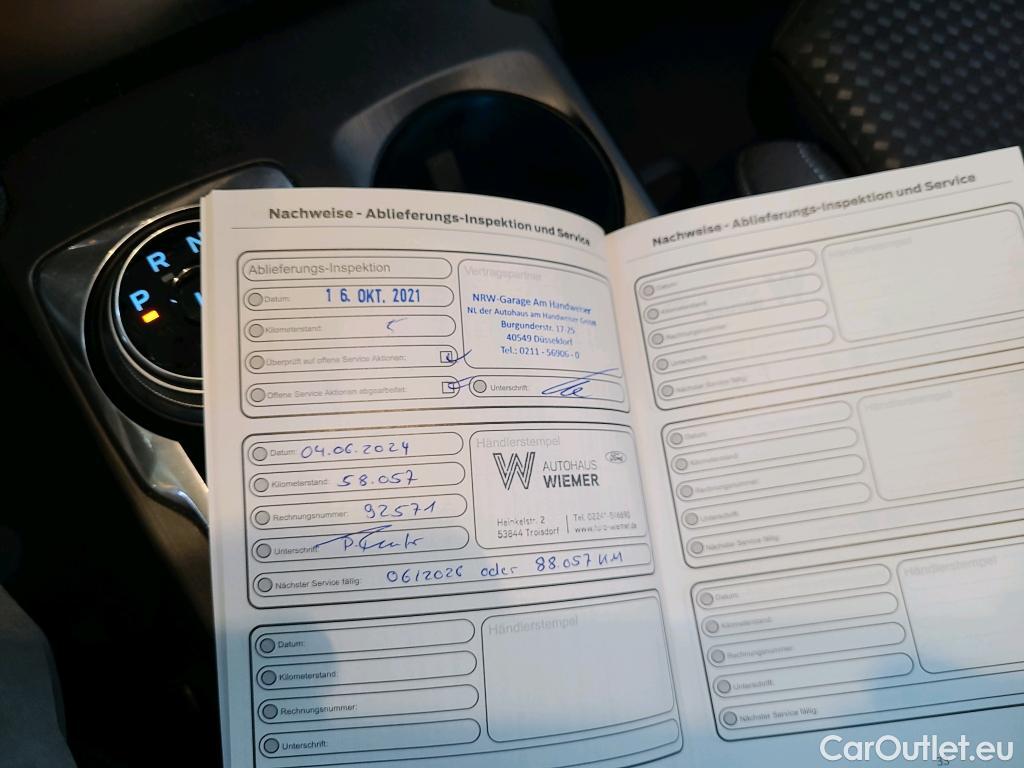 R N
P
Nachweise - Ablieferungs-Inspektion und Service
Ablieferungs-Inspektion
Datum: 16. OKT. 2021
Kilometerstand:
Überprüft auf offene Service Aktionen:
Offene Service Aktionen abgearbeitet:
Vertragspartner
NRW-Garage Am Handweiser
NL der Autohaus am Handweiser GmbH
Burgunderstr. 17-25
40549 Düsseldorf
Tel.: 0211 - 56906 - 0
Unterschrift:
Datum: 04.06.2024
Kilometerstand: 58.057
Rechnungsnummer: 92571
Unterschrift:
Nächster Service fällig: 06/2026 oder 88.057 KM
Händlerstempel
W AUTOHAUS
WIEMER
Ford
Heinkelstr. 2
53844 Troisdorf
Datum:
Kilometerstand:
Rechnungsnummer:
Unterschrift:
Händlerstempel
Nachweise - Ablieferungs-Inspektion und Service
Datum:
Kilometerstand:
Rechnungsnummer:
Unterschrift:
Nächster Service fällig:
Händlerstempel
Datum:
Kilometerstand:
Rechnungsnummer:
Unterschrift:
Nächster Service fällig:
Händlerstempel
Datum:
Kilometerstand:
Rechnungsnummer:
Unterschrift:
Nächster Service fällig:
Händlerstempel
CarOutlet.eu